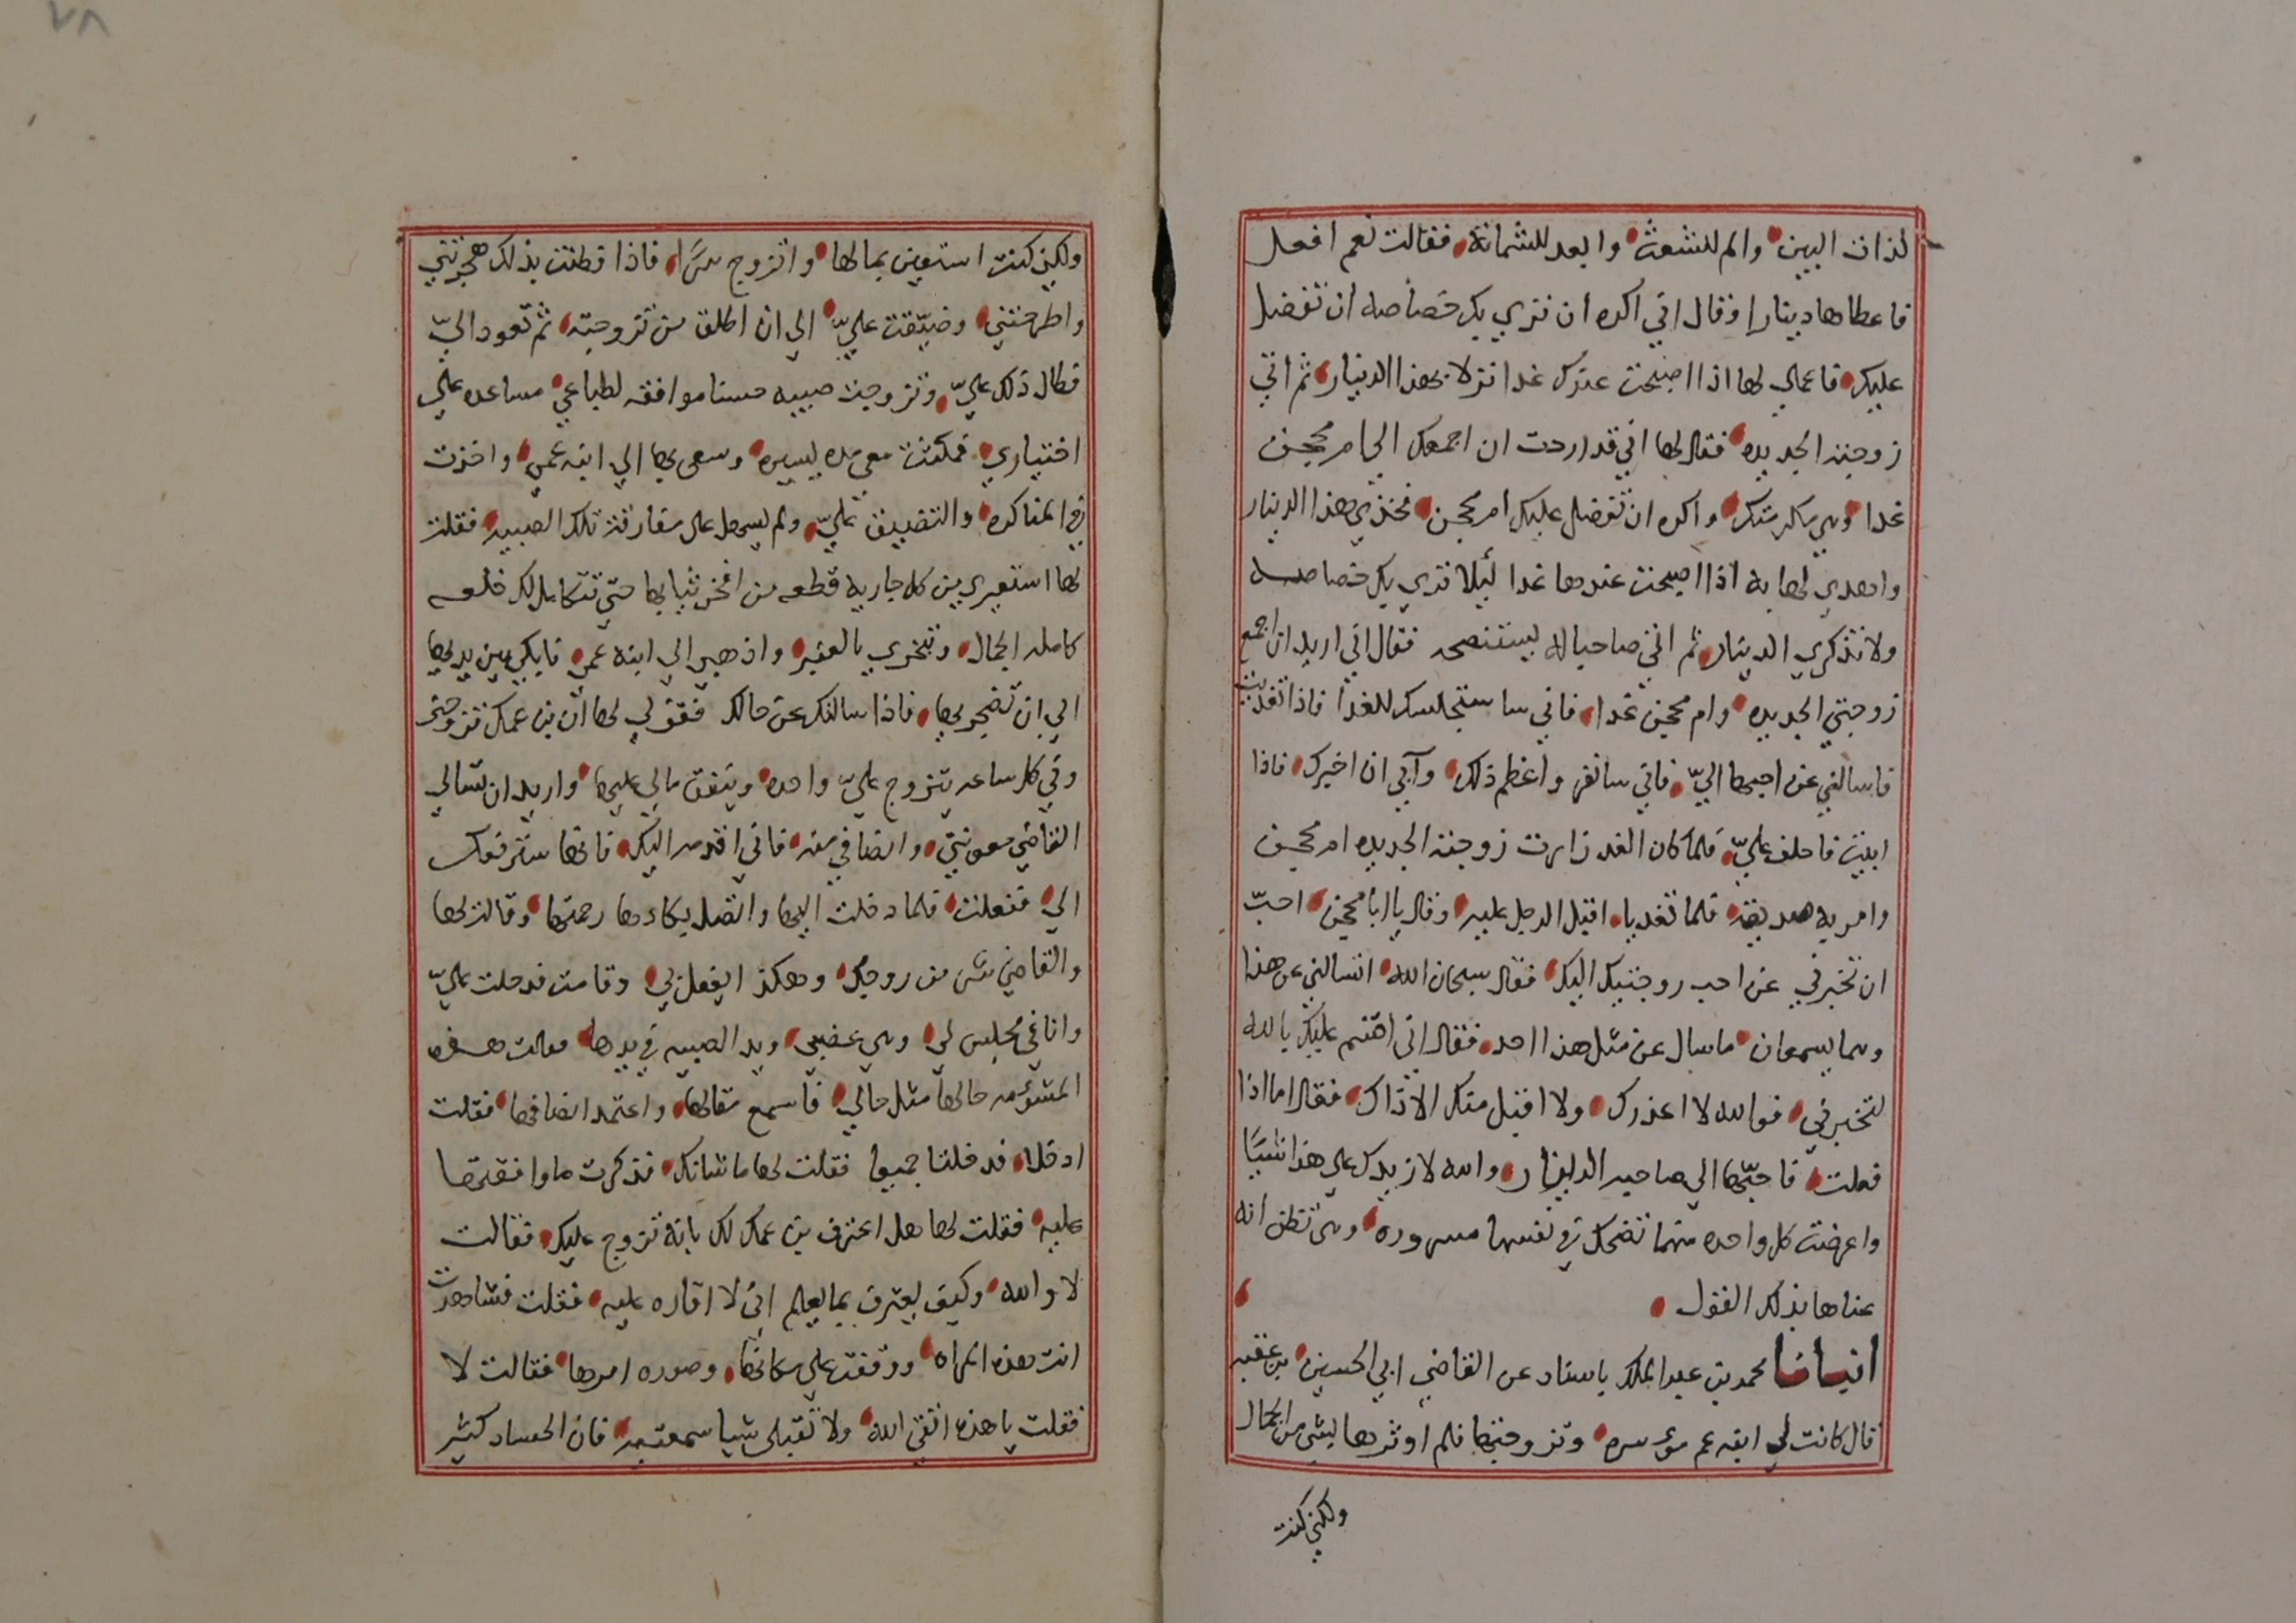 لذات البين والم للشعث وابعد للشماتة فقالت نعم افعل
فاعطاها دينارا وقال اني اكره ان تري بك خصاصه ان تفضل
عليك فاعملي لها اذا اصبحت عندك غدا نزلا بهذا الدينار ثم اتي
زوجته الجديده فقال لها اني قد اردت ان اجمعك الي ام محجن
غدا وهي مكرمتك واكره ان تفضل عليك ام محجن فخذي هذا الدينار
واهدي لها به اذا اصبحت عندها غدا ليلا تري بك خصاصه
ولا تذكري الدينار ثم اتي صاحبا له يستنصحه فقال اني اريد ان اجمع
زوجتي الجديده وام محجن غدا فاتني ساستجلسك للغدا فاذا تغديت
فاسالني عن احبهما الي فاني سانفر واعظم ذلك وآبي ان اخبرك فاذا
ابيت فاحلف علي فلما كان الغد زارت زوجته الجديده ام محجن
وامر به صديقه فلما تغديا اقبل الرجل عليه وقال يا ابا محجن احب
ان تخبرني عن احب زوجتيك اليك فقال سبحان الله اتسالني عن هذا
وهما يسمعان ما سال عن مثل هذا احد فقال اني اقسم عليك بالله
لتخبرني فوالله لا اعذرك ولا اقبل منك الا ذاك فقال اما اذا
فعلت فاحبهما الي صاحبة الدينار والله لا زيدك علي هذا شيا
واعرضت كل واحده منهما تضحك في نفسها مسروره وهي تظن انه
عناها بذلك القول
انبانا محمد بن عبد الملك باسناد عن القاضي ابي الحسين بن عقبه
قال كانت لي ابنه عم موسره وتزوجتها فلم اوثرها لشي من الجمال
ولكني كنت
ولكني كنت استعين بمالها واتزوج سرا فاذا فطنت بذلك هجرتني
واطرحتني وضيقت علي الي ان اطلق من تزوجته ثم تعود الي
فطال ذلك علي وتزوجت صبيه حسنا موافقه لطباعي مساعده علي
اختياري فمكثت معي مده يسيره وسعي بها الي ابنه عمي واخذت
في المناكده والتضييق علي ولم يسهل علي مفارقة تلك الصبيه فقلت
لها استعيري من كل جاريه قطعه من افخر ثيابها حتي تتكامل لك خلعه
كامله الجمال وتبخري بالعنبر واذهبي الي ابنه عمي فابكي بين يديها
الي ان تضجريها فاذا سالتك عن حالك فقولي لها ان بن عمك تزوجني
وفي كل ساعه يتزوج علي واحده وينفق مالي عليها واريد ان تسالي
القاضي معونتي وانصافي منه فاني اقدمه اليك فانها سترفعك
الي ففعلت فلما دخلت اليها واتصل بكاءها رحمتها وقالت لها
والقاضي شر من زوجك وهكذا يفعل بي وقامت فدخلت علي
وانا في مجلس لي وهي غضبي ويد الصبيه في يدها فقالت هذه
المشؤمه حالها مثل حالي فاسمع مقالها واعتمد انصافها فقلت
ادخلا فدخلتا جميعا فقلت لها ما شانك فذكرت ما وافقتها
عليه فقلت لها هل اعترف بن عمك لك بانه تزوج عليك فقالت
لا والله وكيف يعترف بما يعلم اني لا اقاره عليه فقلت فشاهدت
انت هذه المراه ووقفت علي مكانها وصوره امرها فقالت لا
فقلت يا هذه اتقي الله ولا تقبلي شيا سمعتيه فان الحساد كثير
٧٨